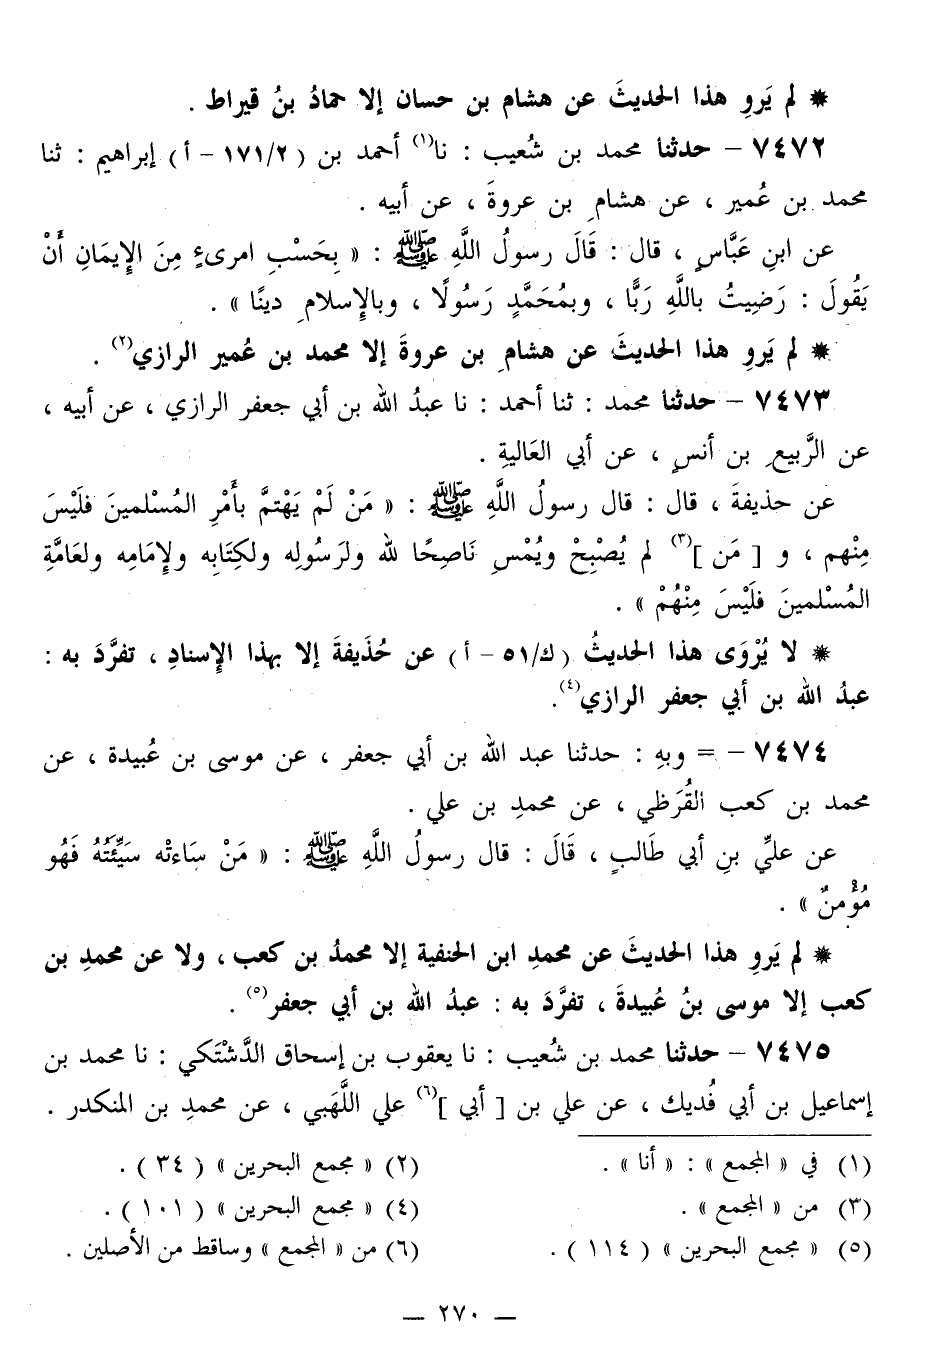 * لم يَروِ هذا الحديثَ عن هشام بن حسان إلا حمادُ بنُ قيراط .
٧٤٧٢ – حدثنا محمد بن شُعيب : نا(١) أحمد بن ( ١٧١/٢ – أ ) إبراهيم : ثنا
محمد بن عُمير ، عن هشامِ بن عروةَ ، عن أبيه .
عن ابنِ عَبَّاسٍ ، قال : قَالَ رسولُ اللَّهِ ﷺ : « بِحَسْبِ امرىءٍ مِنَ الإِيمَانِ أَنْ
يَقُولَ : رَضِيتُ باللَّهِ رَبًّا ، وبمُحَمَّدٍ رَسُولًا ، وبالإِسلامِ دينًا » .
* لم يَروِ هذا الحديثَ عن هشامِ بن عروةَ إلا محمد بن عُمير الرازي(٢) .
٧٤٧٣ – حدثنا محمد : ثنا أحمد : نا عبدُ الله بن أبي جعفر الرازي ، عن أبيه ،
عن الرَّبيعِ بن أنسٍ ، عن أبي العَاليةِ .
عن حذيفةَ ، قال : قال رسولُ اللَّهِ ﷺ : « مَنْ لَمْ يَهْتمَّ بأَمْرِ المُسْلمينَ فلَيْسَ
مِنْهم ، و [ مَن ](٣) لم يُصْبِحْ ويُمْسِ نَاصِحًا لله ولرَسُولِه ولكِتَابِه ولإِمَامِه ولعَامَّةِ
المُسْلمينَ فلَيْسَ مِنْهُمْ » .
* لا يُرْوَى هذا الحديثُ ( ك/٥١ – أ ) عن حُذَيفةَ إلا بهذا الإسنادِ ، تفرَّدَ به :
عبدُ الله بن أبي جعفر الرازي(٤).
٧٤٧٤ – = وبهِ : حدثنا عبد الله بن أبي جعفر ، عن موسى بن عُبيدة ، عن
محمد بن كعب القُرَظي ، عن محمدِ بن علي .
عن عليِّ بنِ أبي طَالبٍ ، قَالَ : قال رسولُ اللَّهِ ﷺ : « مَنْ سَاءتْه سَيِّئَتُهُ فَهُو
مُؤْمنٌ » .
* لم يَروِ هذا الحديثَ عن محمدِ ابن الحنفية إلا محمدُ بن كعب ، ولا عن محمدِ بن
كعب إلا موسى بنُ عُبيدةَ ، تفرَّدَ به : عبدُ الله بن أبي جعفر(٥) .
٧٤٧٥ – حدثنا محمد بن شُعيب : نا يعقوب بن إسحاق الدَّشْتَكي : نا محمد بن
إسماعيل بن أبي فُديك ، عن علي بن [ أبي ](٦) علي اللَّهَبي ، عن محمدِ بن المنكدر .
(١) في « المجمع » : « أنا » .
(٢) « مجمع البحرين » ( ٣٤ ) .
(٣) من « المجمع » .
(٤) « مجمع البحرين » ( ١٠١ ) .
(٥) « مجمع البحرين » ( ١١٤ ) .
(٦) من « المجمع » وساقط من الأصلين .
— ٢٧٠ —